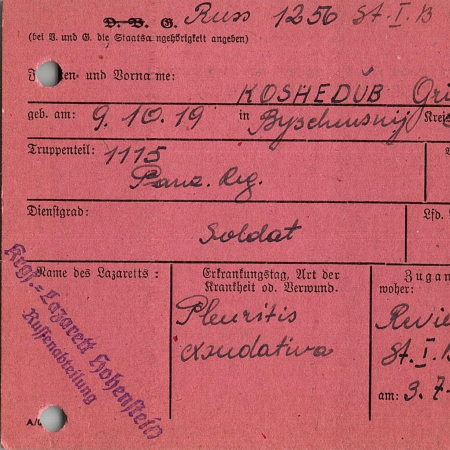 D. B. G. Russ 1256 St. I. B
(bei B. und G. die Staatsangehörigkeit angeben)
Familien- und Vorname:
KOSHEDUB Gri
geb. am: 9.10.19 in Byschensnij Kreis
Truppenteil: 1115
Panz. Reg.
Dienstgrad: Lfd.
Soldat
Name des Lazaretts:
Krgf.=Lazarett Hohenstein
Russenabteilung
Erkrankungstag, Art der
Krankheit od. Verwund.
Pleuritis
exsudativa
Zugan
woher:
Revie
St. I. B
am: 3.7.